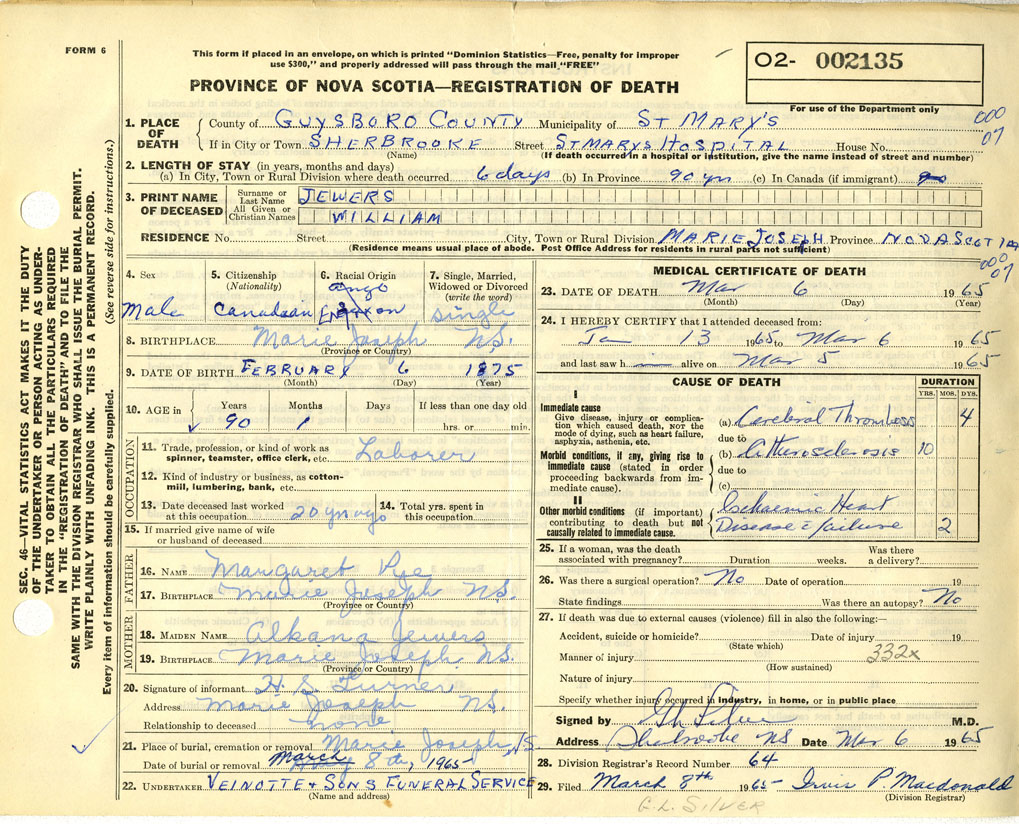 FORM 6
This form if placed in an envelope, on which is printed "Dominion Statistics—Free, penalty for improper
use $300," and properly addressed will pass through the mail "FREE"
PROVINCE OF NOVA SCOTIA—REGISTRATION OF DEATH
O2- 002135
For use of the Department only
000
07
SEC. 46—VITAL STATISTICS ACT MAKES IT THE DUTY
OF THE UNDERTAKER OR PERSON ACTING AS UNDER-
TAKER TO OBTAIN ALL THE PARTICULARS REQUIRED
IN THE "REGISTRATION OF DEATH" AND TO FILE THE
SAME WITH THE DIVISION REGISTRAR WHO SHALL ISSUE THE BURIAL PERMIT.
WRITE PLAINLY WITH UNFADING INK. THIS IS A PERMANENT RECORD.
Every item of information should be carefully supplied. (See reverse side for instructions.)
1. PLACE OF DEATH
County of GUYSBORO COUNTY Municipality of ST MARY'S
If in City or Town SHERBROOKE Street ST MARYS HOSPITAL House No.
(Name) (If death occurred in a hospital or institution, give the name instead of street and number)
2. LENGTH OF STAY (in years, months and days)
(a) In City, Town or Rural Division where death occurred 6 days (b) In Province 90 yrs (c) In Canada (if immigrant)
3. PRINT NAME OF DECEASED
Surname or Last Name JEWERS
All Given or Christian Names WILLIAM
RESIDENCE No. Street City, Town or Rural Division MARIE JOSEPH Province NOVA SCOTIA
(Residence means usual place of abode. Post Office Address for residents in rural parts not sufficient)
000
07
4. Sex
Male
5. Citizenship
(Nationality)
Canadian
6. Racial Origin
7. Single, Married,
Widowed or Divorced
(write the word)
single
8. BIRTHPLACE Marie Joseph N.S.
(Province or Country)
9. DATE OF BIRTH FEBRUARY 6 1875
(Month) (Day) (Year)
10. AGE in
Years Months Days If less than one day old
90 1 hrs. or min.
OCCUPATION
11. Trade, profession, or kind of work as
spinner, teamster, office clerk, etc. Laborer
12. Kind of industry or business, as cotton-
mill, lumbering, bank, etc.
13. Date deceased last worked
at this occupation 20 yrs ago
14. Total yrs. spent in
this occupation
15. If married give name of wife
or husband of deceased
FATHER
16. NAME Margaret
17. BIRTHPLACE Marie Joseph N.S.
(Province or Country)
MOTHER
18. MAIDEN NAME Alkana Jewers
19. BIRTHPLACE Marie Joseph. N.S.
(Province or Country)
20. Signature of informant H. S. Turner
Address Marie Joseph N.S.
Relationship to deceased none
21. Place of burial, cremation or removal Marie Joseph N.S.
Date of burial or removal March 8th, 1965
22. UNDERTAKER VEINOTTE & SONS FUNERAL SERVICE
(Name and address)
MEDICAL CERTIFICATE OF DEATH
23. DATE OF DEATH Mar 6 1965
(Month) (Day) (Year)
24. I HEREBY CERTIFY that I attended deceased from:
Jan 13 1965 to Mar 6 1965
and last saw h alive on Mar 5 1965
CAUSE OF DEATH
DURATION
YRS. MOS. DYS.
I
Immediate cause
Give disease, injury or complica-
tion which caused death, NOT the
mode of dying, such as heart failure,
asphyxia, asthenia, etc.
(a) Cerebral Thrombosis 4
due to
Morbid conditions, if any, giving rise to
immediate cause (stated in order
proceeding backwards from im-
mediate cause).
(b) Atherosclerosis 10
due to
(c)
II
Other morbid conditions (if important)
contributing to death but not
causally related to immediate cause.
Ischaemic Heart
Disease c failure 2
25. If a woman, was the death
associated with pregnancy? Duration weeks. Was there
a delivery?
26. Was there a surgical operation? No Date of operation 19
State findings Was there an autopsy? No
27. If death was due to external causes (violence) fill in also the following:—
Accident, suicide or homicide? Date of injury 19
(State which) 332x
Manner of injury
(How sustained)
Nature of injury
Specify whether injury occurred in industry, in home, or in public place
Signed by M.D.
Address Sherbrooke NS Date Mar 6 1965
28. Division Registrar's Record Number 64
29. Filed March 8th 1965 Irvin P. Macdonald
(Division Registrar)
G.L. SILVER